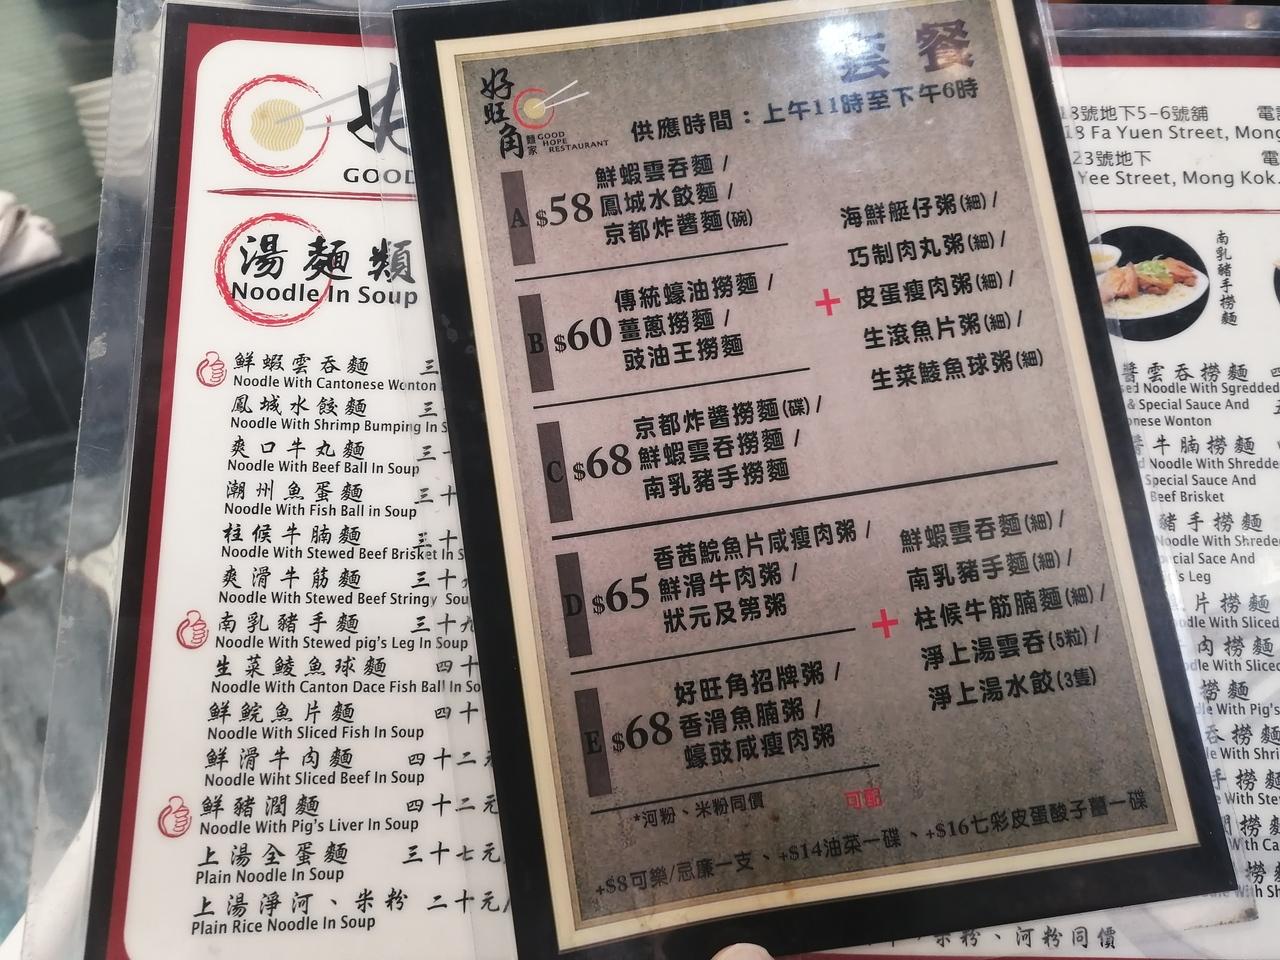 套餐
好旺角
麵家
GOOD
HOPE
RESTAURANT
供應時間：上午11時至下午6時
A $58
鮮蝦雲吞麵 /
鳳城水餃麵 /
京都炸醬麵(碗)
B $60
傳統蠔油撈麵 /
薑蔥撈麵 /
豉油王撈麵
C $68
京都炸醬撈麵(碟) /
鮮蝦雲吞撈麵 /
南乳豬手撈麵
+
海鮮艇仔粥(細) /
巧制肉丸粥(細) /
皮蛋瘦肉粥(細) /
生滾魚片粥(細) /
生菜鯪魚球粥(細)
D $65
香茜鯇魚片咸瘦肉粥 /
鮮滑牛肉粥 /
狀元及第粥
E $68
好旺角招牌粥 /
香滑魚腩粥 /
蠔豉咸瘦肉粥
+
鮮蝦雲吞麵(細) /
南乳豬手麵(細) /
柱候牛筋腩麵(細) /
淨上湯雲吞(5粒) /
淨上湯水餃(3隻)
*河粉、米粉同價
可配
+$8可樂/忌廉一支、+$14油菜一碟、+$16七彩皮蛋酸子薑一碟
GOOD
湯麵類
Noodle In Soup
鮮蝦雲吞麵 三
Noodle With Cantonese Wonton
鳳城水餃麵 三
Noodle With Shrimp Bumping In S
爽口牛丸麵 三
Noodle With Beef Ball In Soup
潮州魚蛋麵 三十
Noodle With Fish Ball in Soup
柱候牛腩麵 三十
Noodle With Stewed Beef Brisket In S
爽滑牛筋麵 三十
Noodle With Stewed Beef Stringy Sou
南乳豬手麵 三十九
Noodle With Stewed pig's Leg In Soup
生菜鯪魚球麵 四十
Noodle With Canton Dace Fish Ball In So
鮮鯇魚片麵 四十
Noodle With Sliced Fish In Soup
鮮滑牛肉麵 四十二元
Noodle Wiht Sliced Beef In Soup
鮮豬潤麵 四十二元
Noodle With Pig's Liver In Soup
上湯全蛋麵 三十七元
Plain Noodle In Soup
上湯淨河、米粉 二十元/
Plain Rice Noodle In Soup
18號地下5-6號舖 電
18 Fa Yuen Street, Mong
23號地下 電
Yee Street, Mong Kok.
南乳豬手撈麵
醬雲吞撈麵 四
ed Noodle With Sgredded
& Special Sauce And
onese Wonton
牛腩撈麵 四
d Noodle With Shredde
Special Sauce And
Beef Brisket
豬手撈麵
Noodle With Shrede
ecial Sace And
's Leg
片撈麵
dle With Sliced
肉撈麵
dle With Sliced
撈麵
dle With Pig's
吞撈麵
e With Shri
手撈麵
e With Ste
米粉、河粉同價